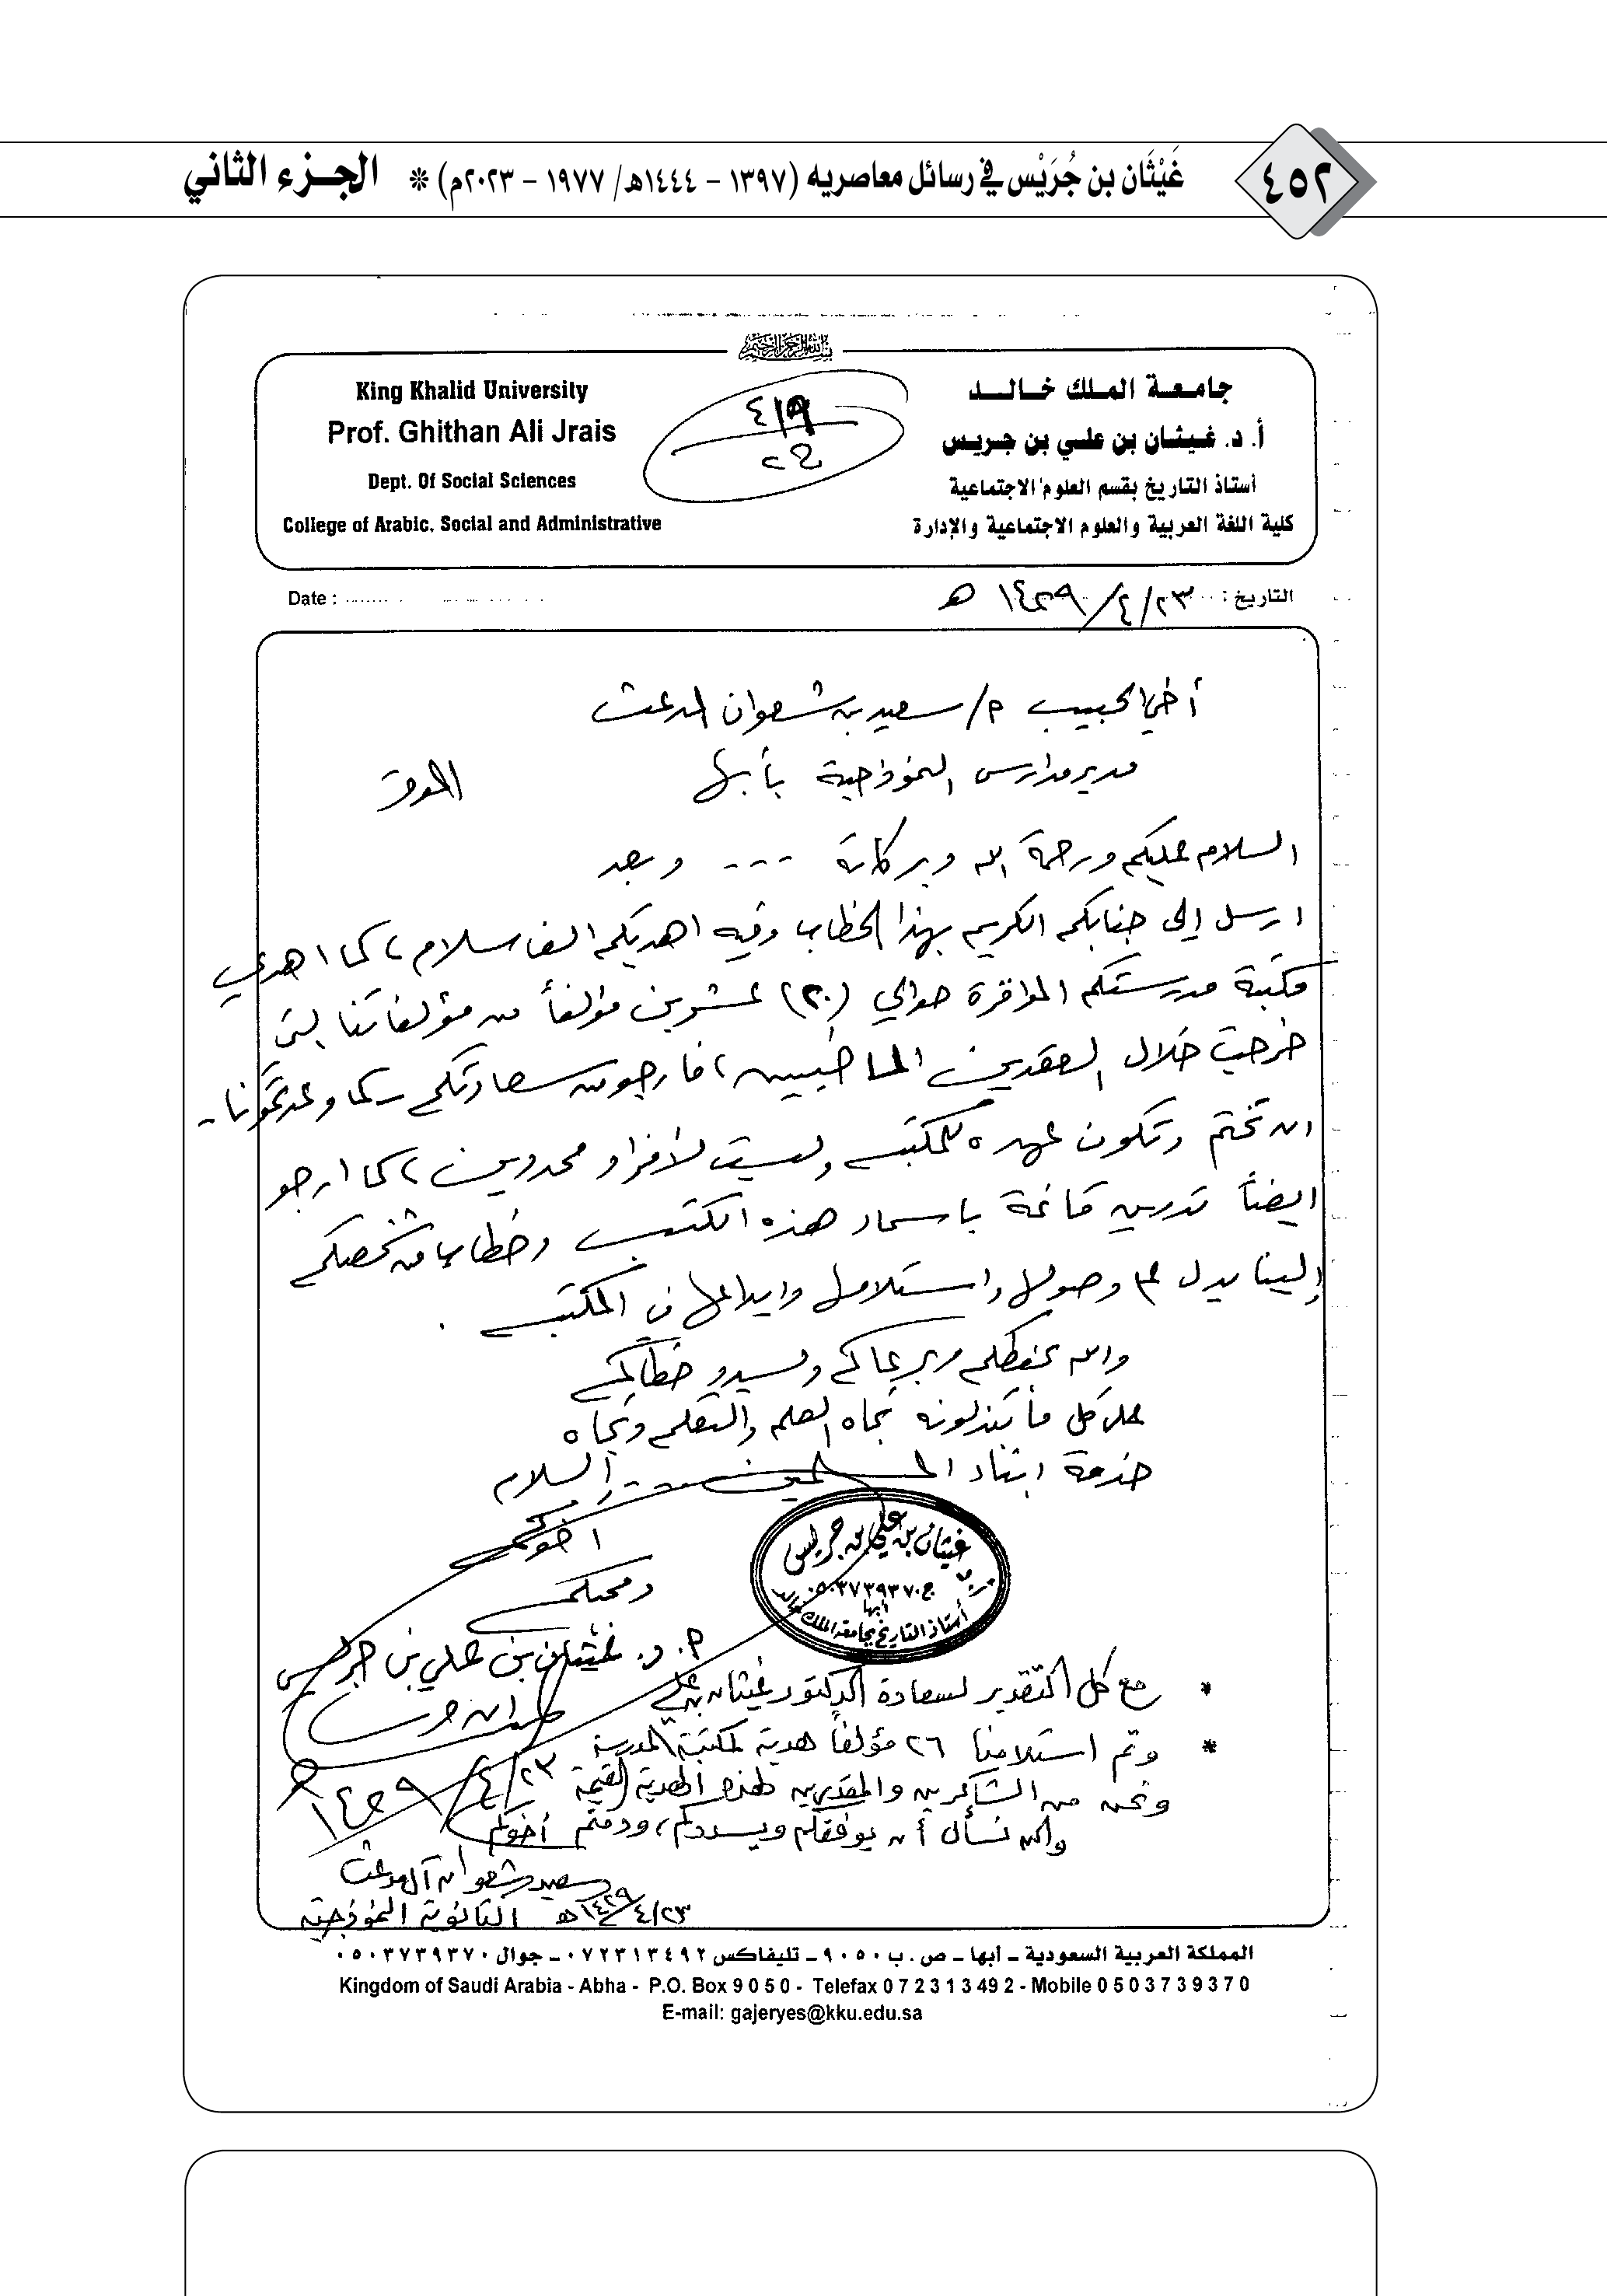 ٤٥٢
غَيْثَان بن جُرَيْس في رسائل معاصريه (١٣٩٧ - ١٤٤٤هـ/ ١٩٧٧ - ٢٠٢٣م) * الجـزء الثاني
بسم الله الرحمن الرحيم
جامـعـة الـملـك خـالـــد
أ. د. غـيـثـان بن علـي بن جـريـس
أستاذ التاريخ بقسم العلوم الاجتماعية
كلية اللغة العربية والعلوم الاجتماعية والإدارة
٤١٩
٢٤
King Khalid University
Prof. Ghithan Ali Jrais
Dept. Of Social Sciences
College of Arabic, Social and Administrative
التاريخ: ٢٣/٤/١٤٢٩ هـ
Date :
أخي الحبيب م/ سعيد بن شعوان
مدير مدارس النموذجية بأبها الموقر
السلام عليكم ورحمة الله وبركاته --- وبعد
ارسل إلى جنابكم الكريم بهذا الخطاب وفيه اهديكم الف سلام، كما اهدي
مكتبة مدرستكم الموقرة حوالي (٢٠) عشرين مؤلفاً من مؤلفاتنا التي
خرجت خلال العقدين الماضيين، فارجو من سعادتكم - كما وعدتمونا -
ان تختم وتكون عهده للمكتبة وليست لأفراد محدودين، كما ارجو
ايضاً تدريس قائمة باسماء هذه الكتب وخطاب من شخصكم
إلينا يدل على وصولها واستلامها وايداعها في المكتبة .
والله يحفظكم ويرعاكم ويسدد خطاكم
على كل ما تبذلونه تجاه العلم والتعلم وتجاه
خدمة ابناء المسلمين --- والسلام
اخوكم
ومحبكم
أ. د. غيثان بن علي بن جريس
٢٣/٤/١٤٢٩
غيثان بن علي بن جريس
ج ٠٥٠٣٧٣٩٣٧٠
أبها
أستاذ التاريخ بجامعة الملك خالد
* مع كل التقدير لسعادة الدكتور غيثان بن علي
* وتم استلامنا ٢٦ مؤلفاً هدية لمكتبة المدرسة
ونحن من الشاكرين والمقدرين لهذه الهدية القيمة
والله نسأل أن يوفقكم ويسددكم، ودمتم أخوكم
سعيد شعوان آل
الثانوية النموذجية ٢٣/٤/١٤٢٩هـ
المملكة العربية السعودية - أبها - ص . ب ٩٠٥٠ - تليفاكس ٠٧٢٣١٣٤٩٢ - جوال ٠٥٠٣٧٣٩٣٧٠
Kingdom of Saudi Arabia - Abha - P.O. Box 9 0 5 0 - Telefax 0 7 2 3 1 3 49 2 - Mobile 0 5 0 3 7 3 9 3 7 0
E-mail: gajeryes@kku.edu.sa